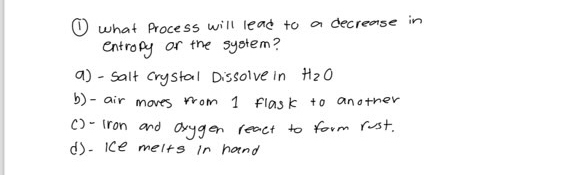 ① what Process will lead to a decrease in
entropy or the system?
a) - Salt Crystal Dissolve in H₂O
b) - air moves from 1 flask to another
c) - Iron and Oxygen react to form rust.
d) - Ice melts in hand